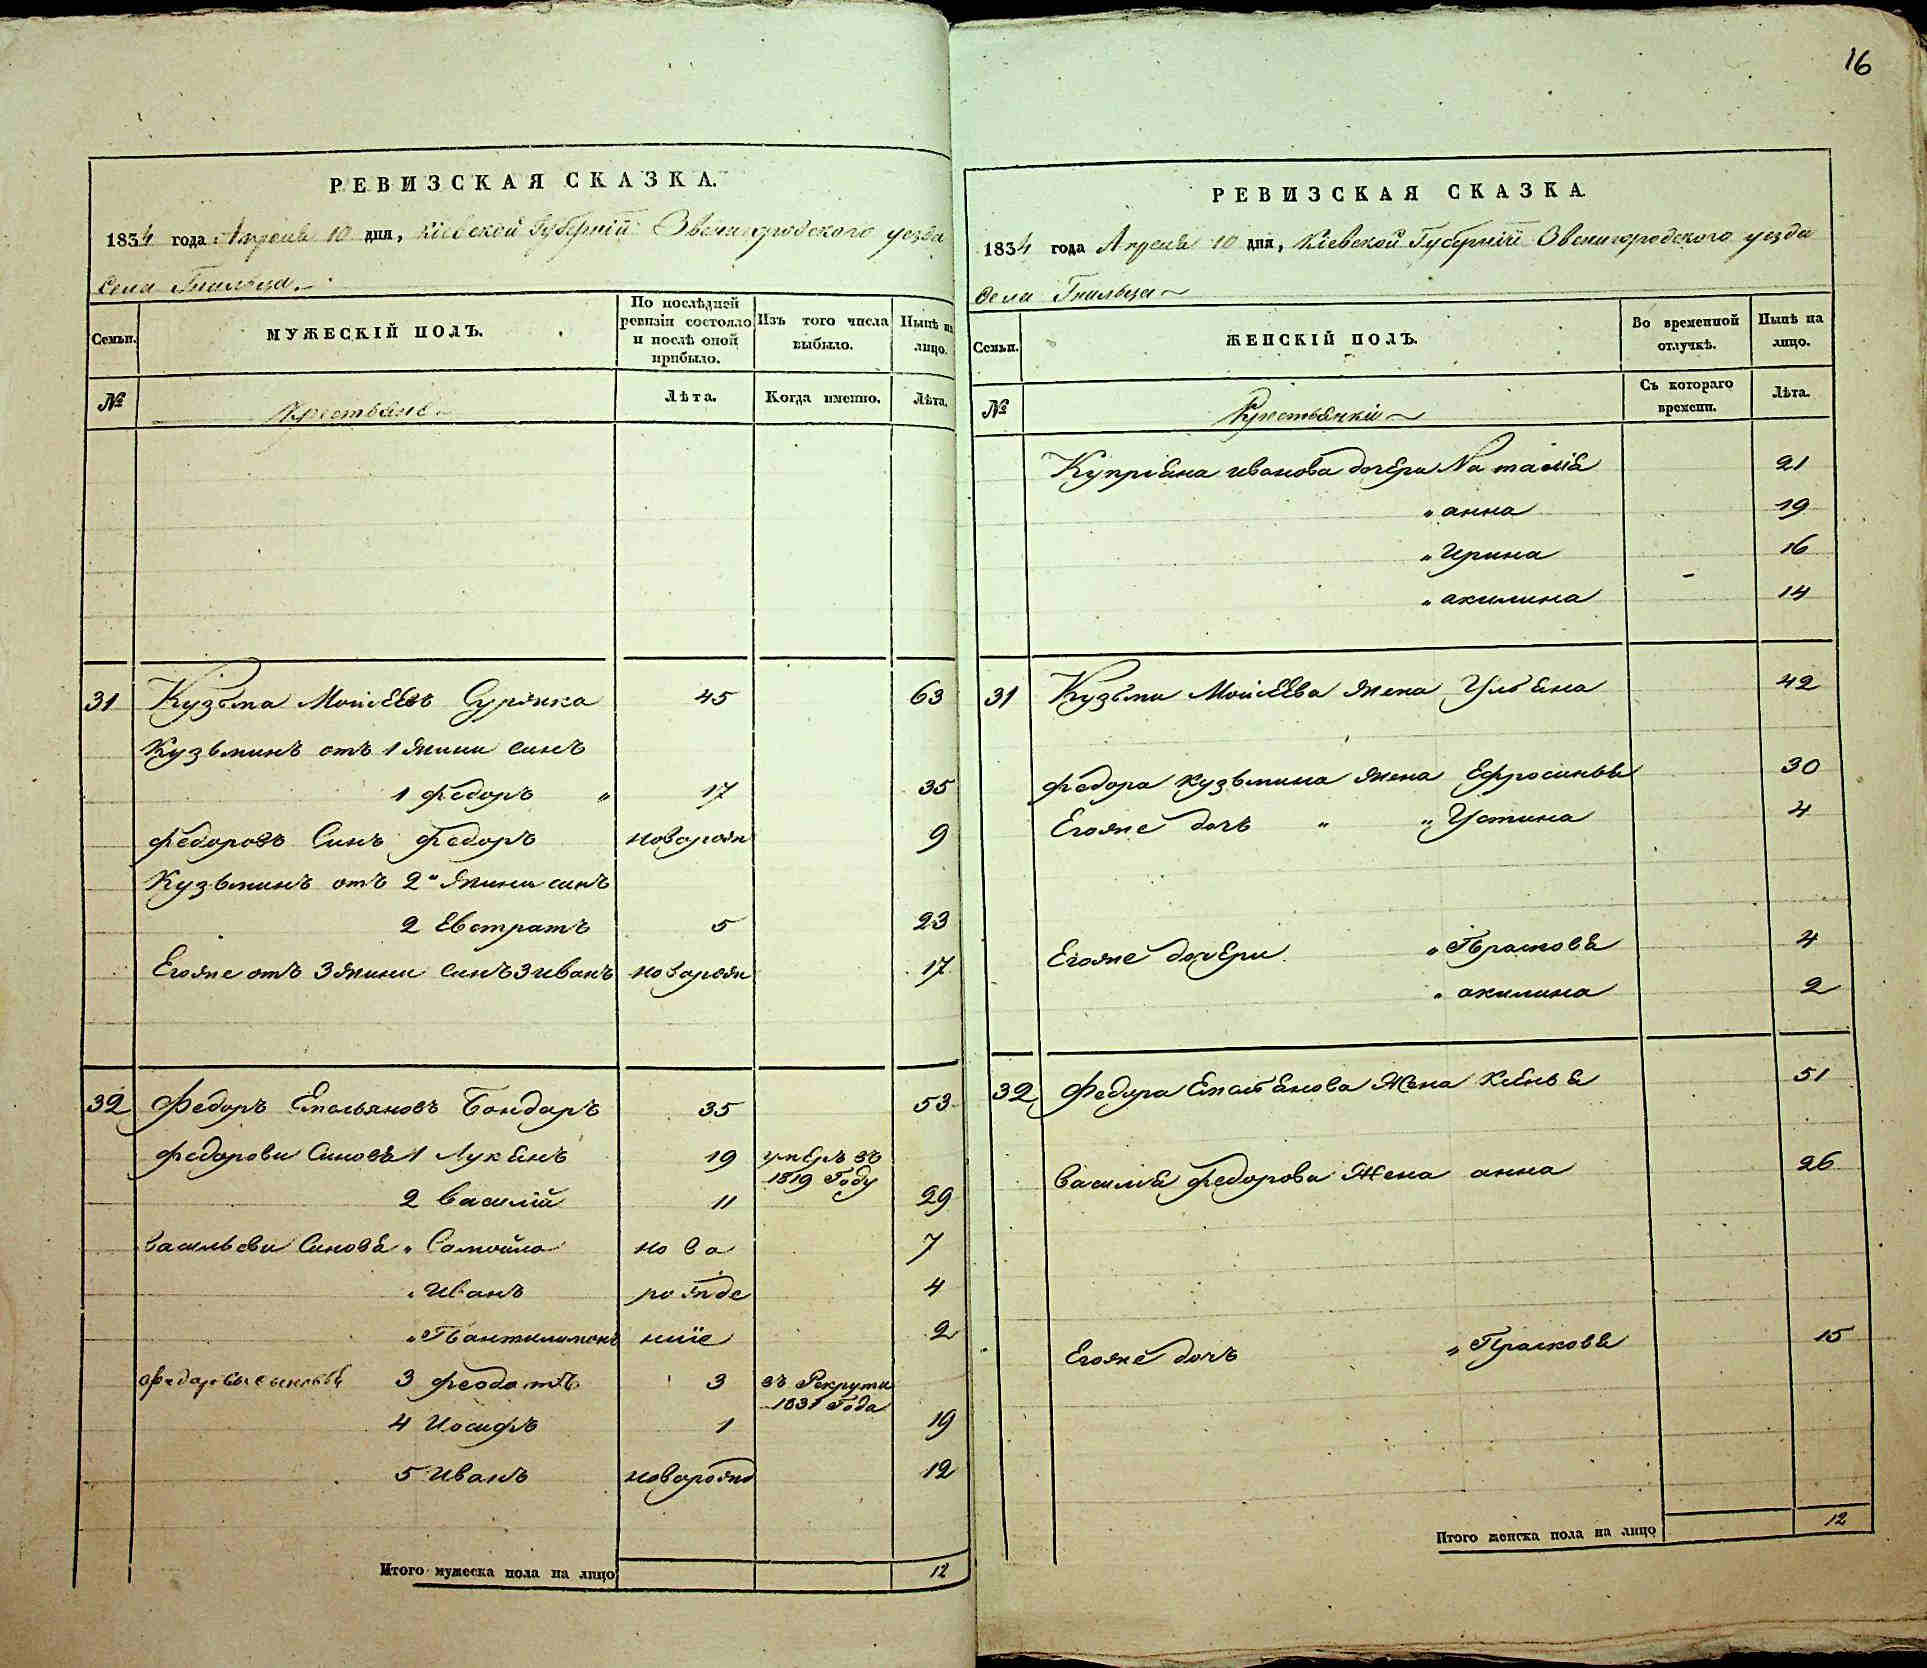 РЕВИЗСКАЯ СКАЗКА.
1834 года Апреля 10 дня, Кіевской Губерніи Звенигородского уезда
Села Гнильца
Семьи.
МУЖЕСКІЙ ПОЛЪ.
По послѣдней ревизіи состояло и послѣ оной прибыло.
Изъ того числа выбыло.
Нынѣ на лицо.
№
Крестьяне
Лѣта.
Когда именно.
Лѣта.
31 Кузьма Моисеевъ Сурянка 45 63
Кузьминъ отъ 1 жини синъ
1 Федоръ " 17 35
Федоровъ Синъ Федоръ новорожд 9
Кузьминъ отъ 2й жини синъ
2 Евстратъ 5 23
Егоже отъ 3 жини синъ 3 иванъ новорожд 17
32 Федоръ Емельяновъ Бондаръ 35 53
Федорови Синовя 1 Лукянъ 19 умеръ въ 1819 Году
2 василій 11 29
васильеви Синовя " Самойло ново 7
" Иванъ рожде 4
" Пантилимонъ ние 2
Федоровы сыновья 3 Феодотъ 3 въ Рекруты 1831 Года
4 Иосифъ 1 19
5 Иванъ новорожд 12
Итого мужеска пола на лицо 12
16
РЕВИЗСКАЯ СКАЗКА
1834 года Апреля 10 дня, Кіевской Губерніи Звенигородского уезда
Села Гнильца
Семьи.
ЖЕНСКІЙ ПОЛЪ.
Во временной отлучкѣ.
Нынѣ на лицо.
№
Крестьянки
Съ котораго времени.
Лѣта.
Купріяна иванова дочери Наталія 21
" анна 19
" Ирина 16
" акилина 14
31 Кузьми Моисеева жена Ульяна 42
Федора Кузьмина жена Ефросинья 30
Егоже дочь " " Устина 4
Егоже дочери " Прасковя 4
" акилина 2
32 Федора Емельянова Жена Ксенья 51
василія Федорова Жена анна 26
Егоже дочъ " Прасковя 15
Итого женска пола на лицо 12